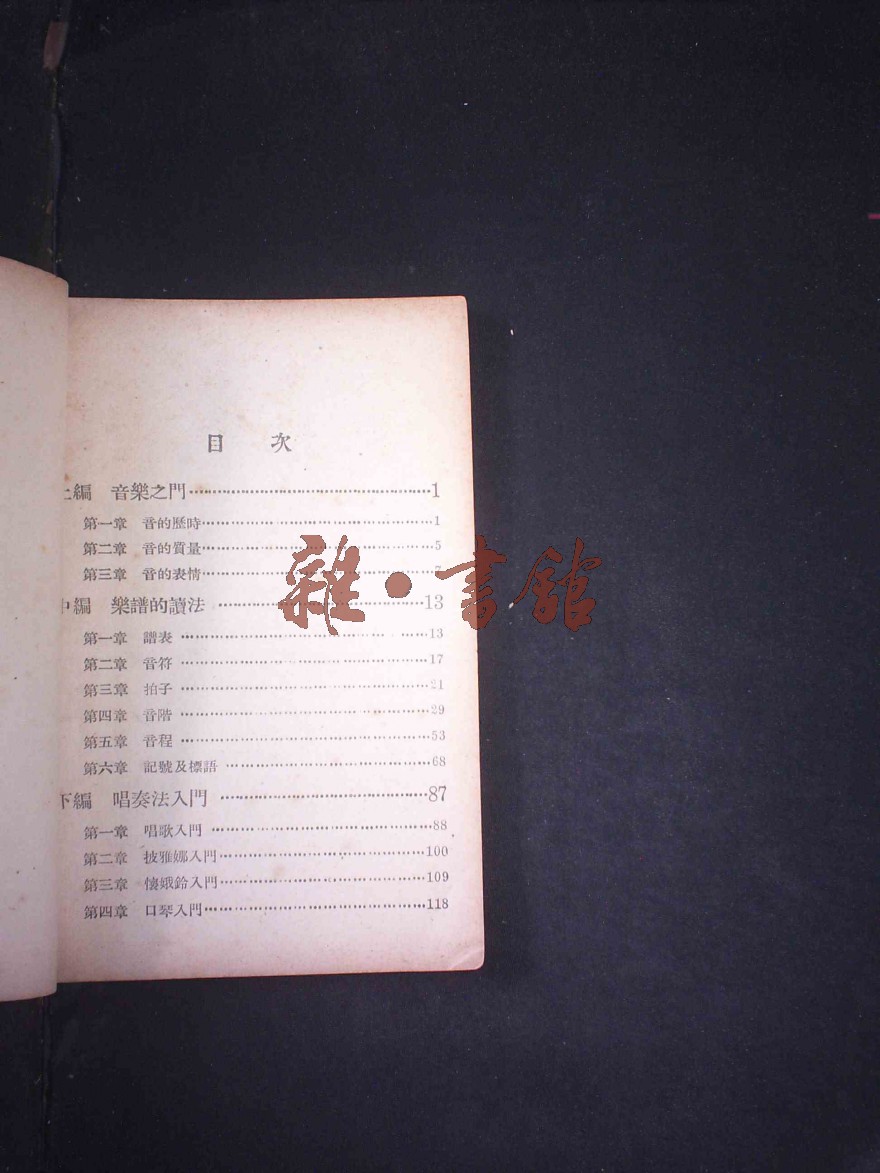 目 次
上編 音樂之門……1
第一章 音的歷時……1
第二章 音的質量……5
第三章 音的表情……7
中編 樂譜的讀法……13
第一章 譜表……13
第二章 音符……17
第三章 拍子……21
第四章 音階……29
第五章 音程……53
第六章 記號及標語……68
下編 唱奏法入門……87
第一章 唱歌入門……88
第二章 披雅娜入門……100
第三章 懷娥鈴入門……109
第四章 口琴入門……118
雜·書館